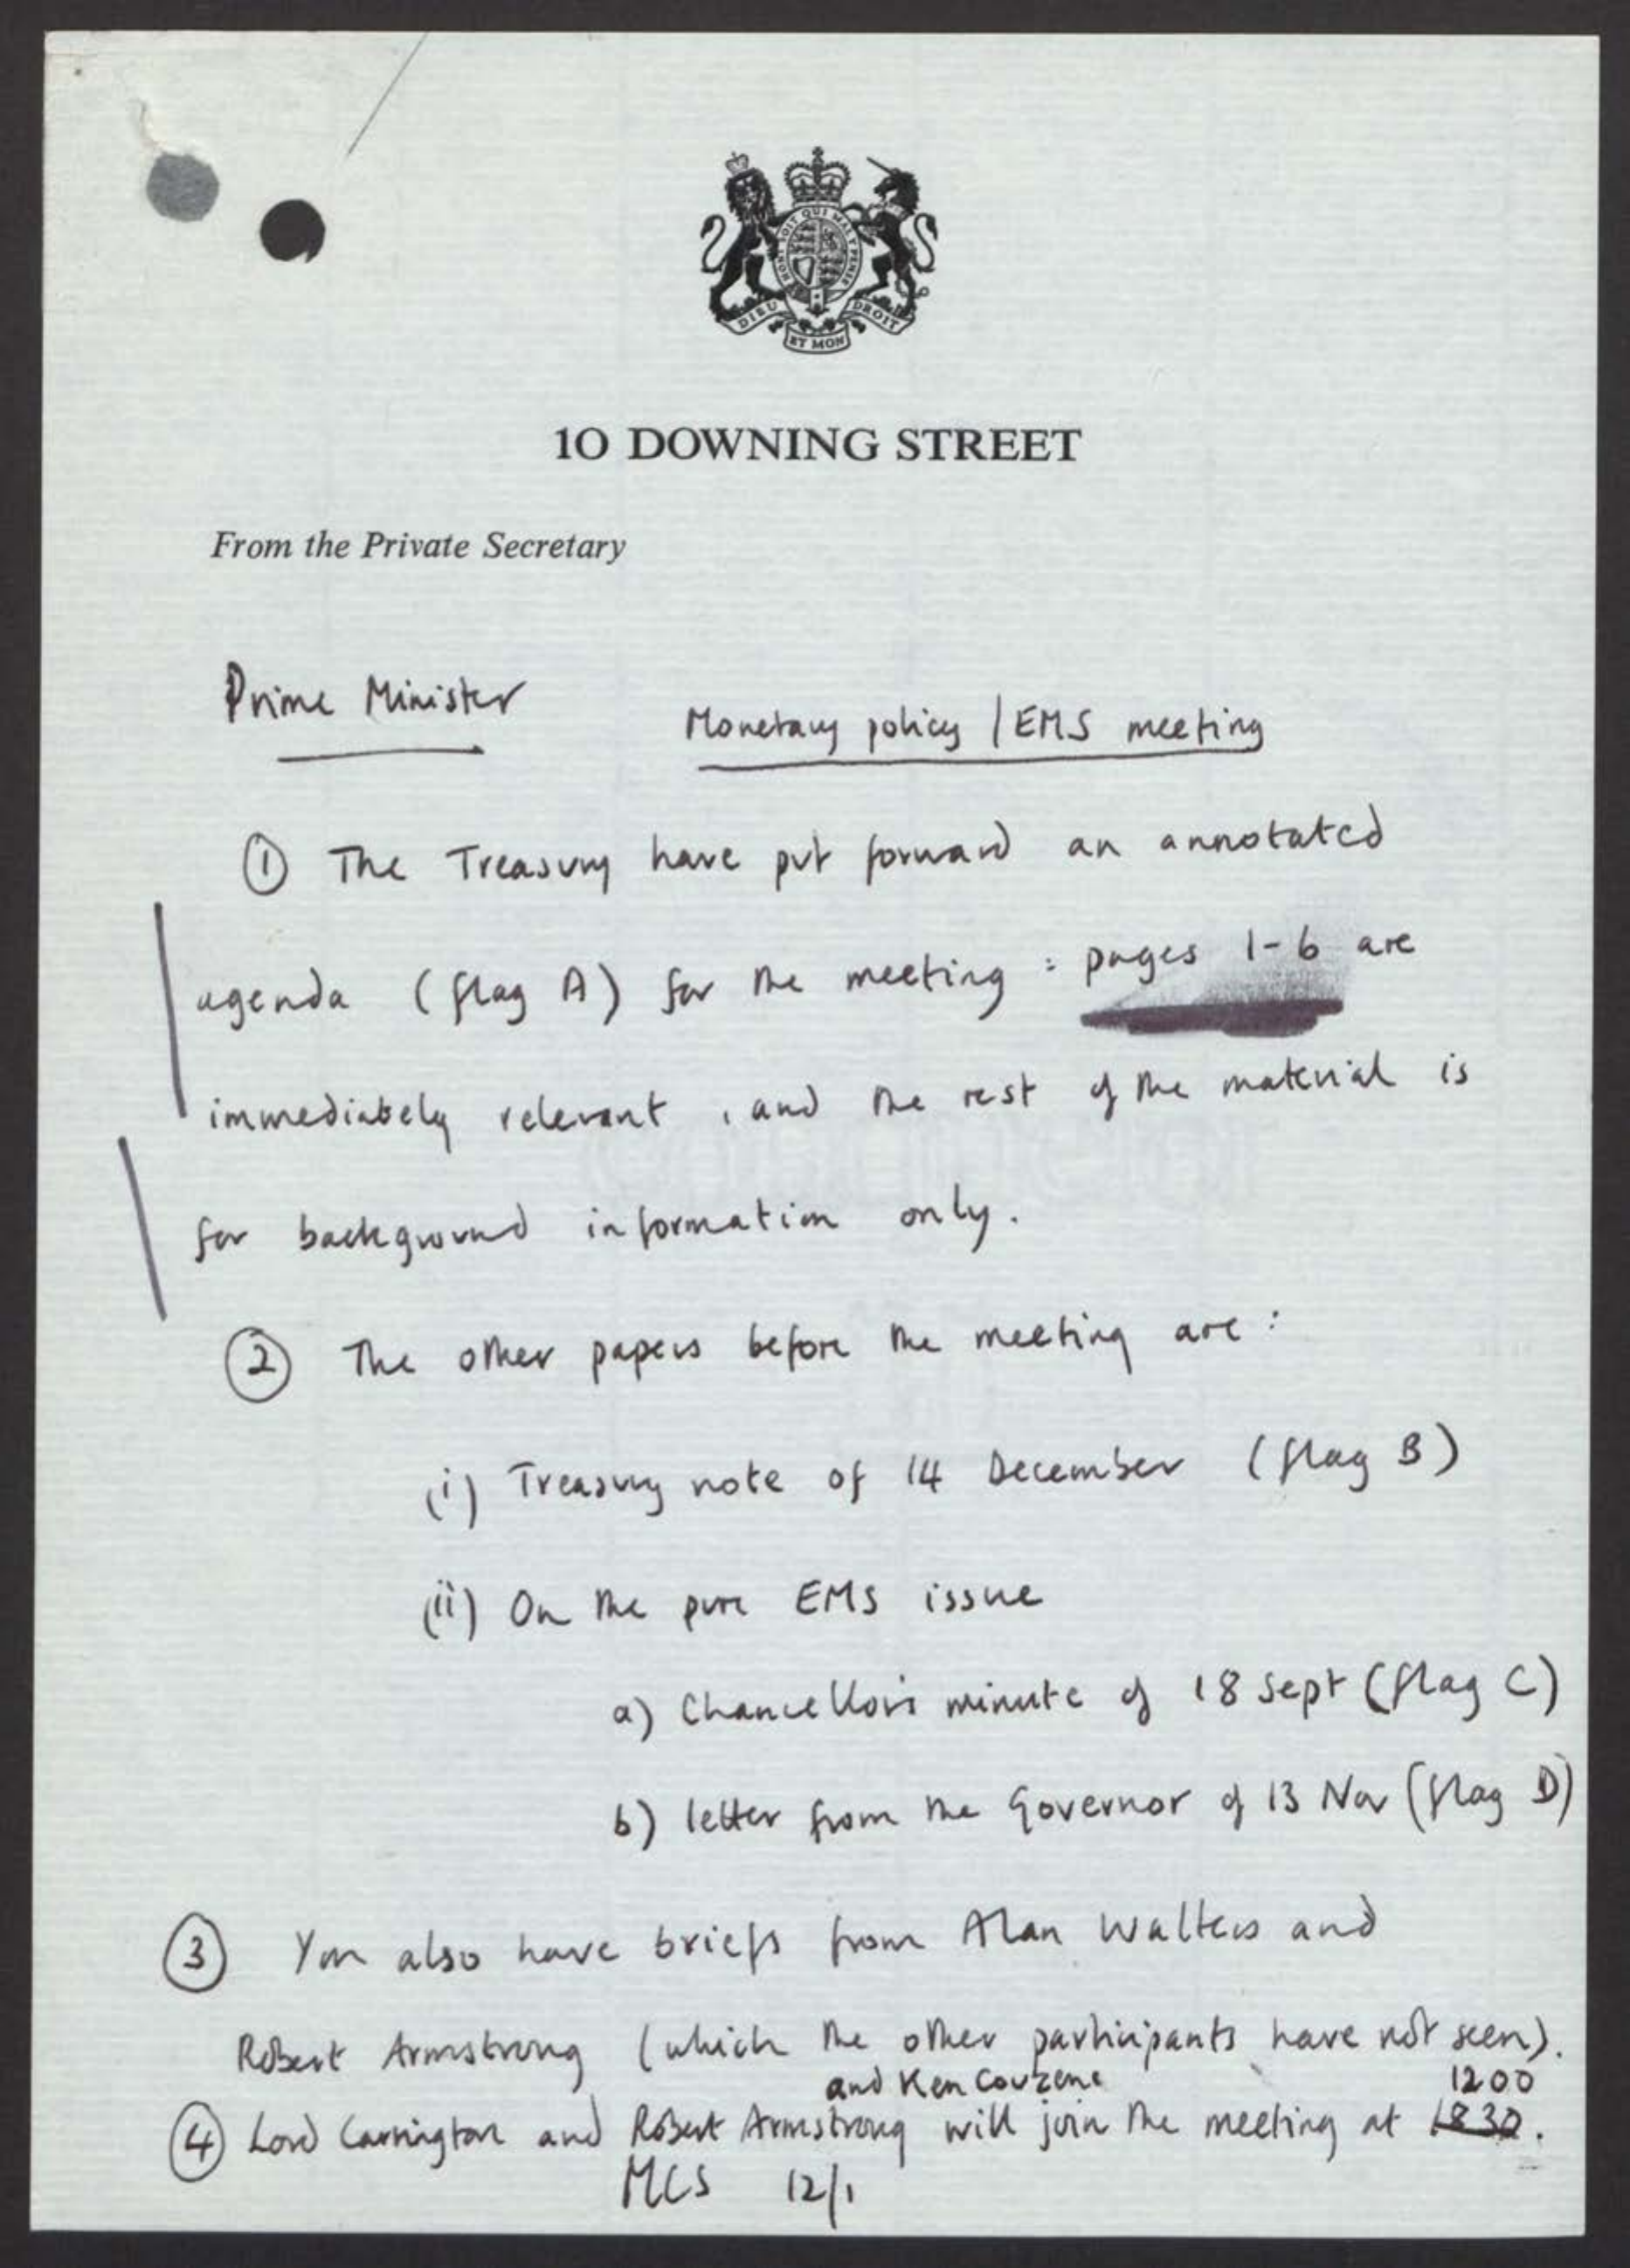 HONI SOIT QUI MAL Y PENSE
DIEU ET MON DROIT
10 DOWNING STREET
From the Private Secretary
Prime Minister
Monetary policy / EMS meeting
① The Treasury have put forward an annotated
agenda (flag A) for the meeting : pages 1-6 are
immediately relevant, and the rest of the material is
for background information only.
② The other papers before the meeting are :
(i) Treasury note of 14 December (flag B)
(ii) On the pure EMS issue
a) Chancellor's minute of 18 Sept (flag C)
b) letter from the Governor of 13 Nov (flag D)
③ You also have briefs from Alan Walters and
Robert Armstrong (which the other participants have not seen).
and Ken Couzens 1200
④ Lord Carrington and Robert Armstrong will join the meeting at 1830.
MCS 12/1